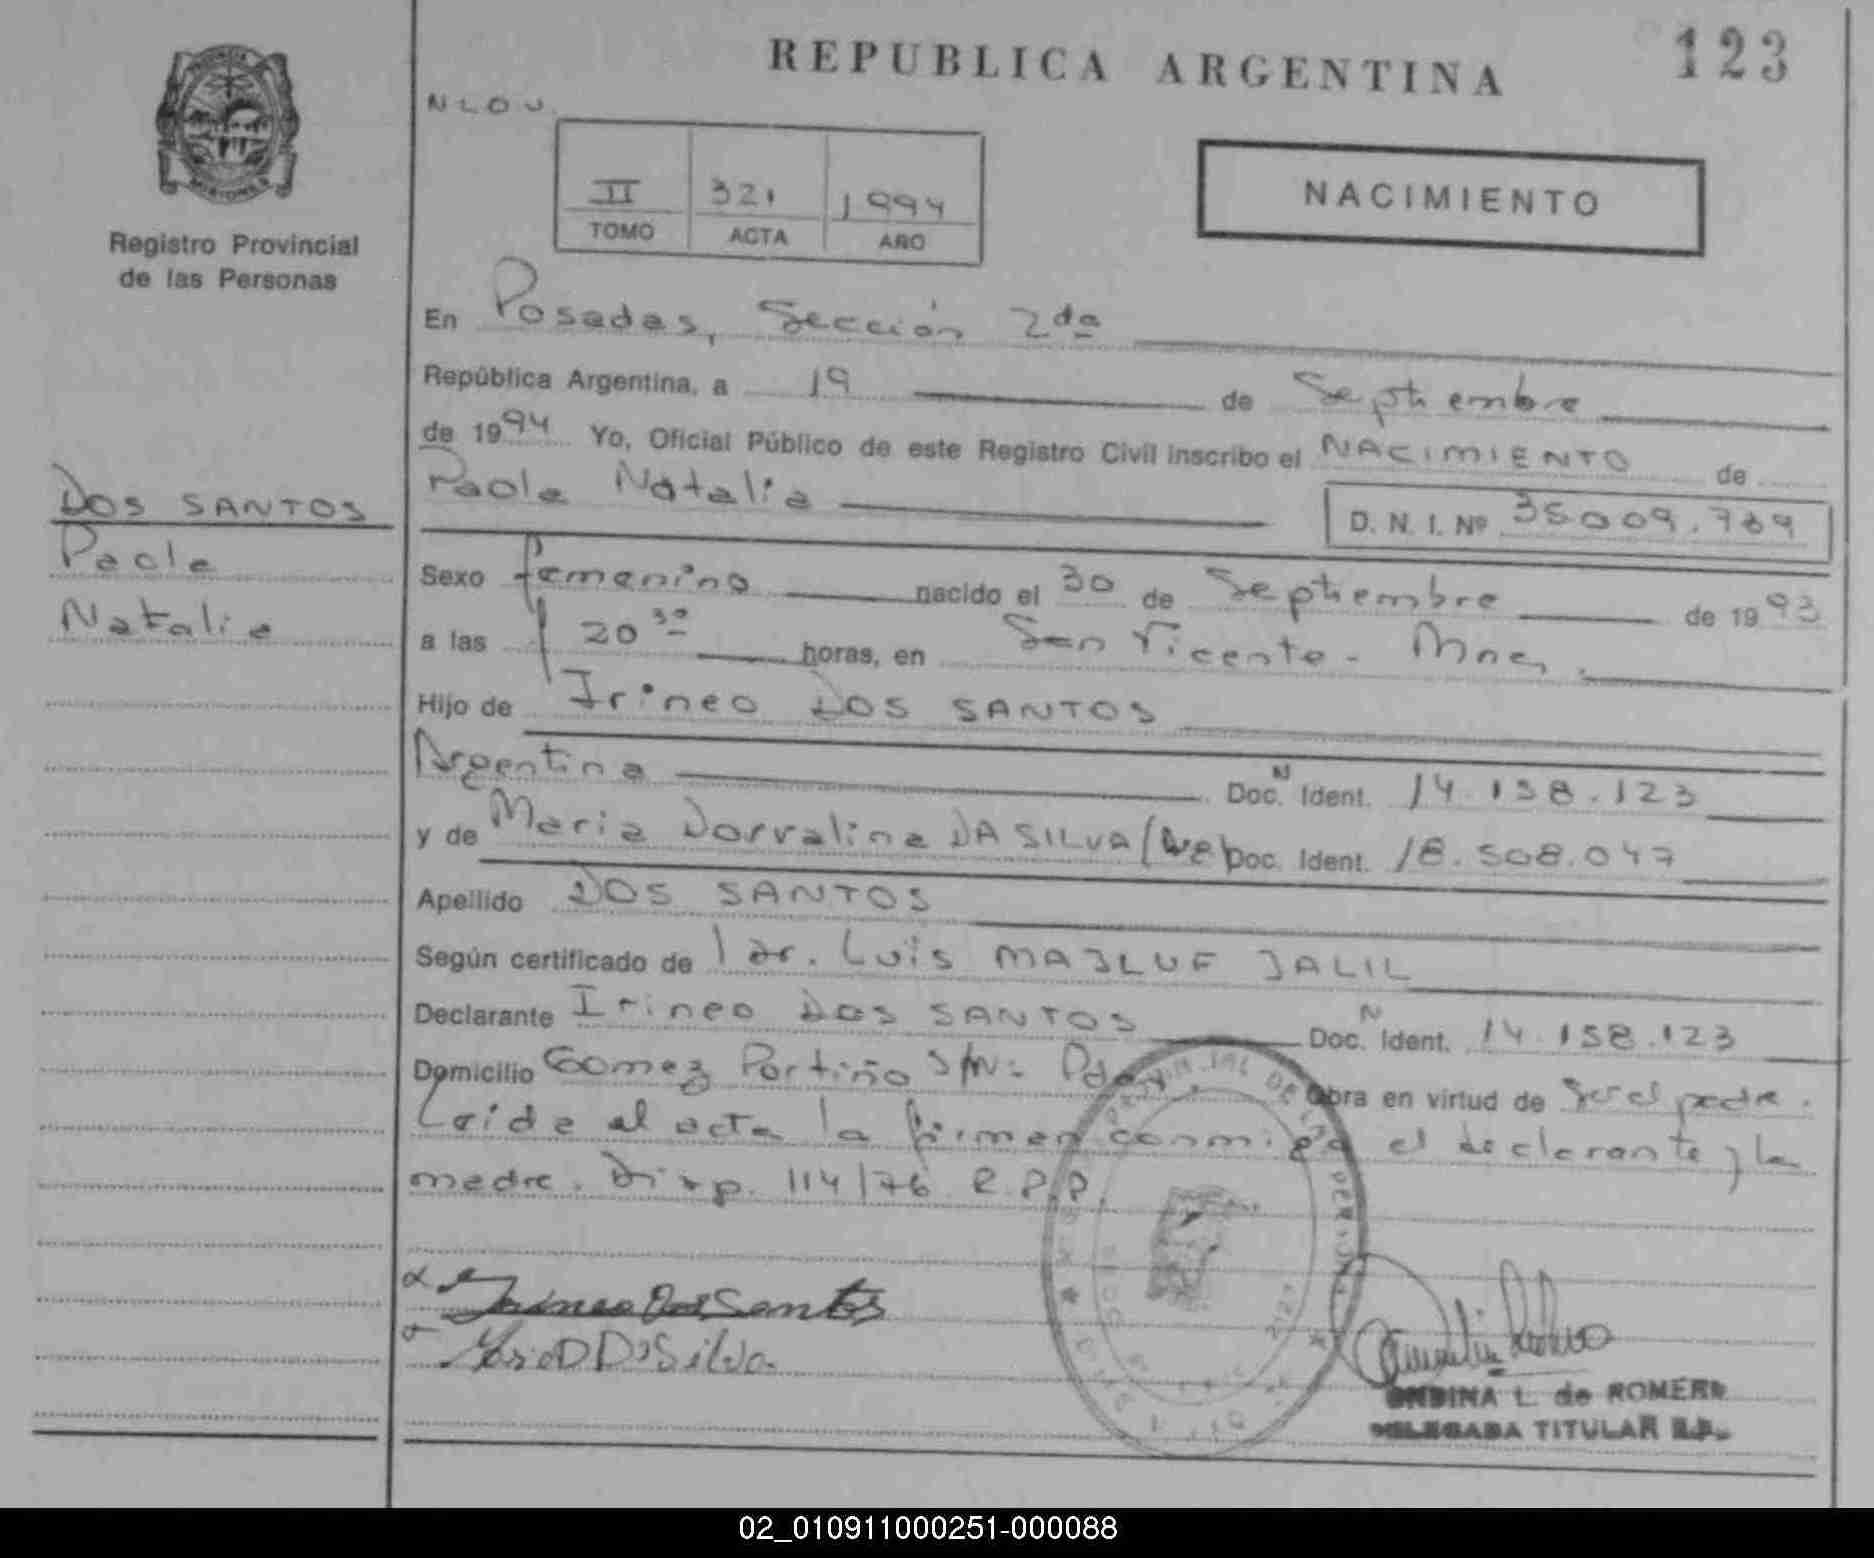 REPUBLICA ARGENTINA
123
Registro Provincial
de las Personas
II 321 1994
TOMO ACTA AÑO
NACIMIENTO
En Posadas, Sección 2da
República Argentina, a 19 de Septiembre
de 1994 Yo, Oficial Público de este Registro Civil inscribo el NACIMIENTO de
Paola Natalia
D. N. I. Nº 35009.789
DOS SANTOS
Paola
Natalia
Sexo femenino nacido el 30 de Septiembre de 1993
a las 20 30 horas, en San Vicente - Mnes.
Hijo de Irineo DOS SANTOS
Argentina Doc. N Ident. 14.158.123
y de Maria Dorvalina DA SILVA Doc. Ident. 18.508.047
Apellido DOS SANTOS
Según certificado de Dr. Luis MAJLUF JALIL
Declarante Irineo DOS SANTOS Doc. N Ident. 14.158.123
Domicilio Gomez Portiño S/Nº Pdas. Obra en virtud de ser el padre.
Leida el acta la firman conmigo el declarante y la
madre. Disp. 114/76 R.P.P.
Irineo Dos Santos
Maria D Da Silva
ONDINA L. de ROMERO
DELEGADA TITULAR R.P.
02_010911000251-000088